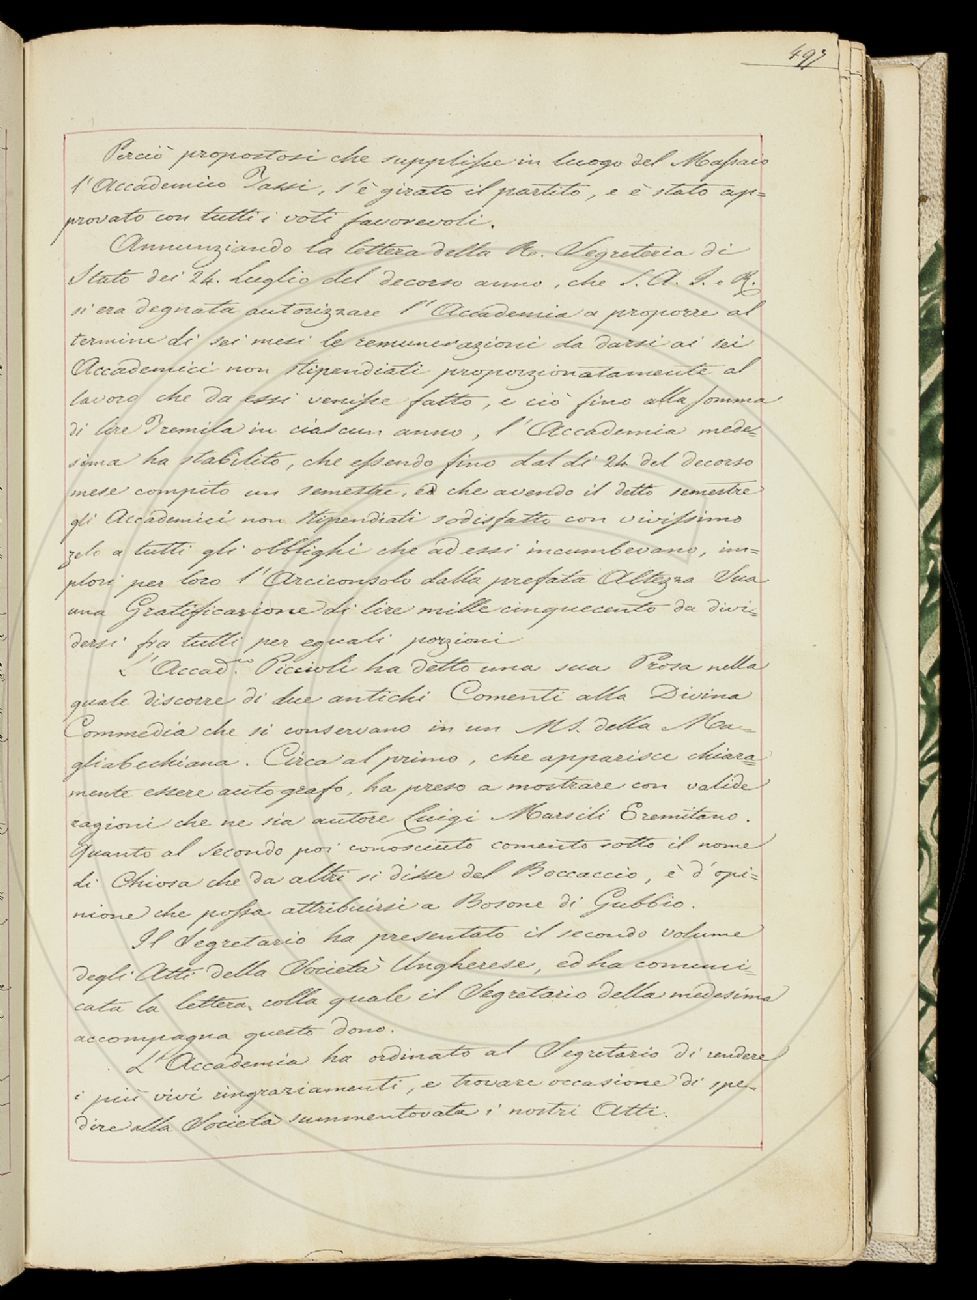 497
Perciò propostosi che supplisse in luogo del Massaio
l'Accademico Tassi, s'è girato il partito, e è stato ap=
provato con tutti i voti favorevoli.
Annunziando la lettera della R. Segreteria di
Stato dei 24. Luglio del decorso anno, che S. A. I. e R.
si era degnata autorizzare l'Accademia a proporre al
termine di sei mesi le remunerazioni da darsi ai sei
Accademici non stipendiati proporzionatamente al
lavoro che da essi venisse fatto, e ciò fino alla somma
di lire Tremila in ciascun anno, l'Accademia mede=
sima ha stabilito, che essendo fino dal dì 24 del decorso
mese compito un semestre, ed che avendo il detto semestre
gli Accademici non stipendiati sodisfatto con vivissimo
zelo a tutti gli obblighi che ad essi incumbevano, im=
plori per loro l'Arciconsolo dalla prefata Altezza Sua
una Gratificazione di lire mille cinquecento da divi=
dersi fra tutti per eguali porzioni
L'Accad.co Piccioli ha detto una sua Prosa nella
quale discorre di due antichi Comenti alla Divina
Commedia che si conservano in un MS. della Ma=
gliabechiana. Circa al primo, che apparisce chiara=
mente essere autografo, ha preso a mostrare con valide
ragioni che ne sia autore Luigi Marsili Eremitano.
Quanto al secondo poi conosciuto comento sotto il nome
di Chiosa che da altri si disse del Boccaccio, è d'opi=
nione che possa attribuirsi a Bosone di Gubbio.
Il Segretario ha presentato il secondo volume
degli Atti della Società Ungherese, ed ha comuni=
cata la lettera, colla quale il Segretario della medesima
accompagna questo dono.
L'Accademia ha ordinato al Segretario di rendere
i più vivi ringraziamenti, e trovare occasione di spe=
dire alla Società summentovata i nostri Atti.